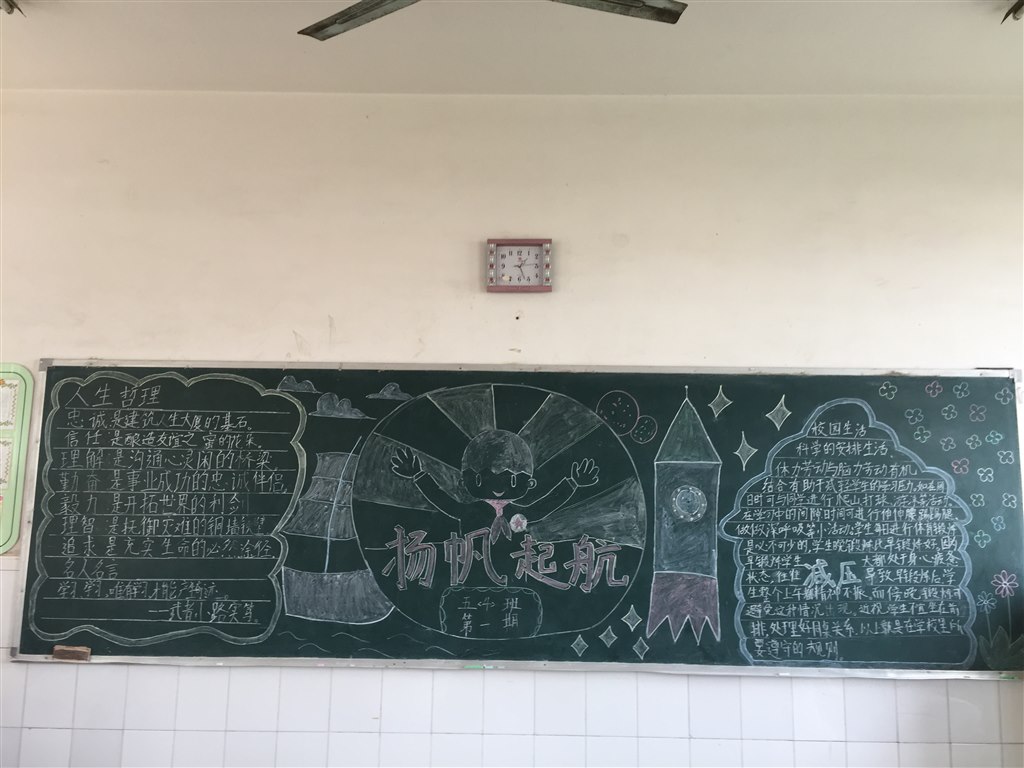 人生哲理
忠诚是建筑人生大厦的基石。
信任是酿造友谊之蜜的花朵。
理解是沟通心灵间的桥梁
勤奋是事业成功的忠诚伴侣
毅力是开拓世界的利剑
理智是抵御灾难的铜墙铁壁
追求是充实生命的必然途径
名人名言
学习，唯解，才能
——武者小路实笃。
扬帆起航
五·4班
第一期
校园生活
科学的安排生活
体力劳动与脑力劳动有机
结合有助于减轻学生的学习压力，如在闲
时可与同学进行爬山打球、
在学习中的间隙时间可进行
做做深呼吸等小活动，学生
是必不可少的，学生
早锻炼学生 大都处于身心疲惫
状态，往往 减压 导致早锻炼后学
生整个上午精神不振，而停政锻炼可
避免这种情况出现，近视学生宜坐在前
排，处理好同桌关系，以上就是在学校生所
要遵守的规则